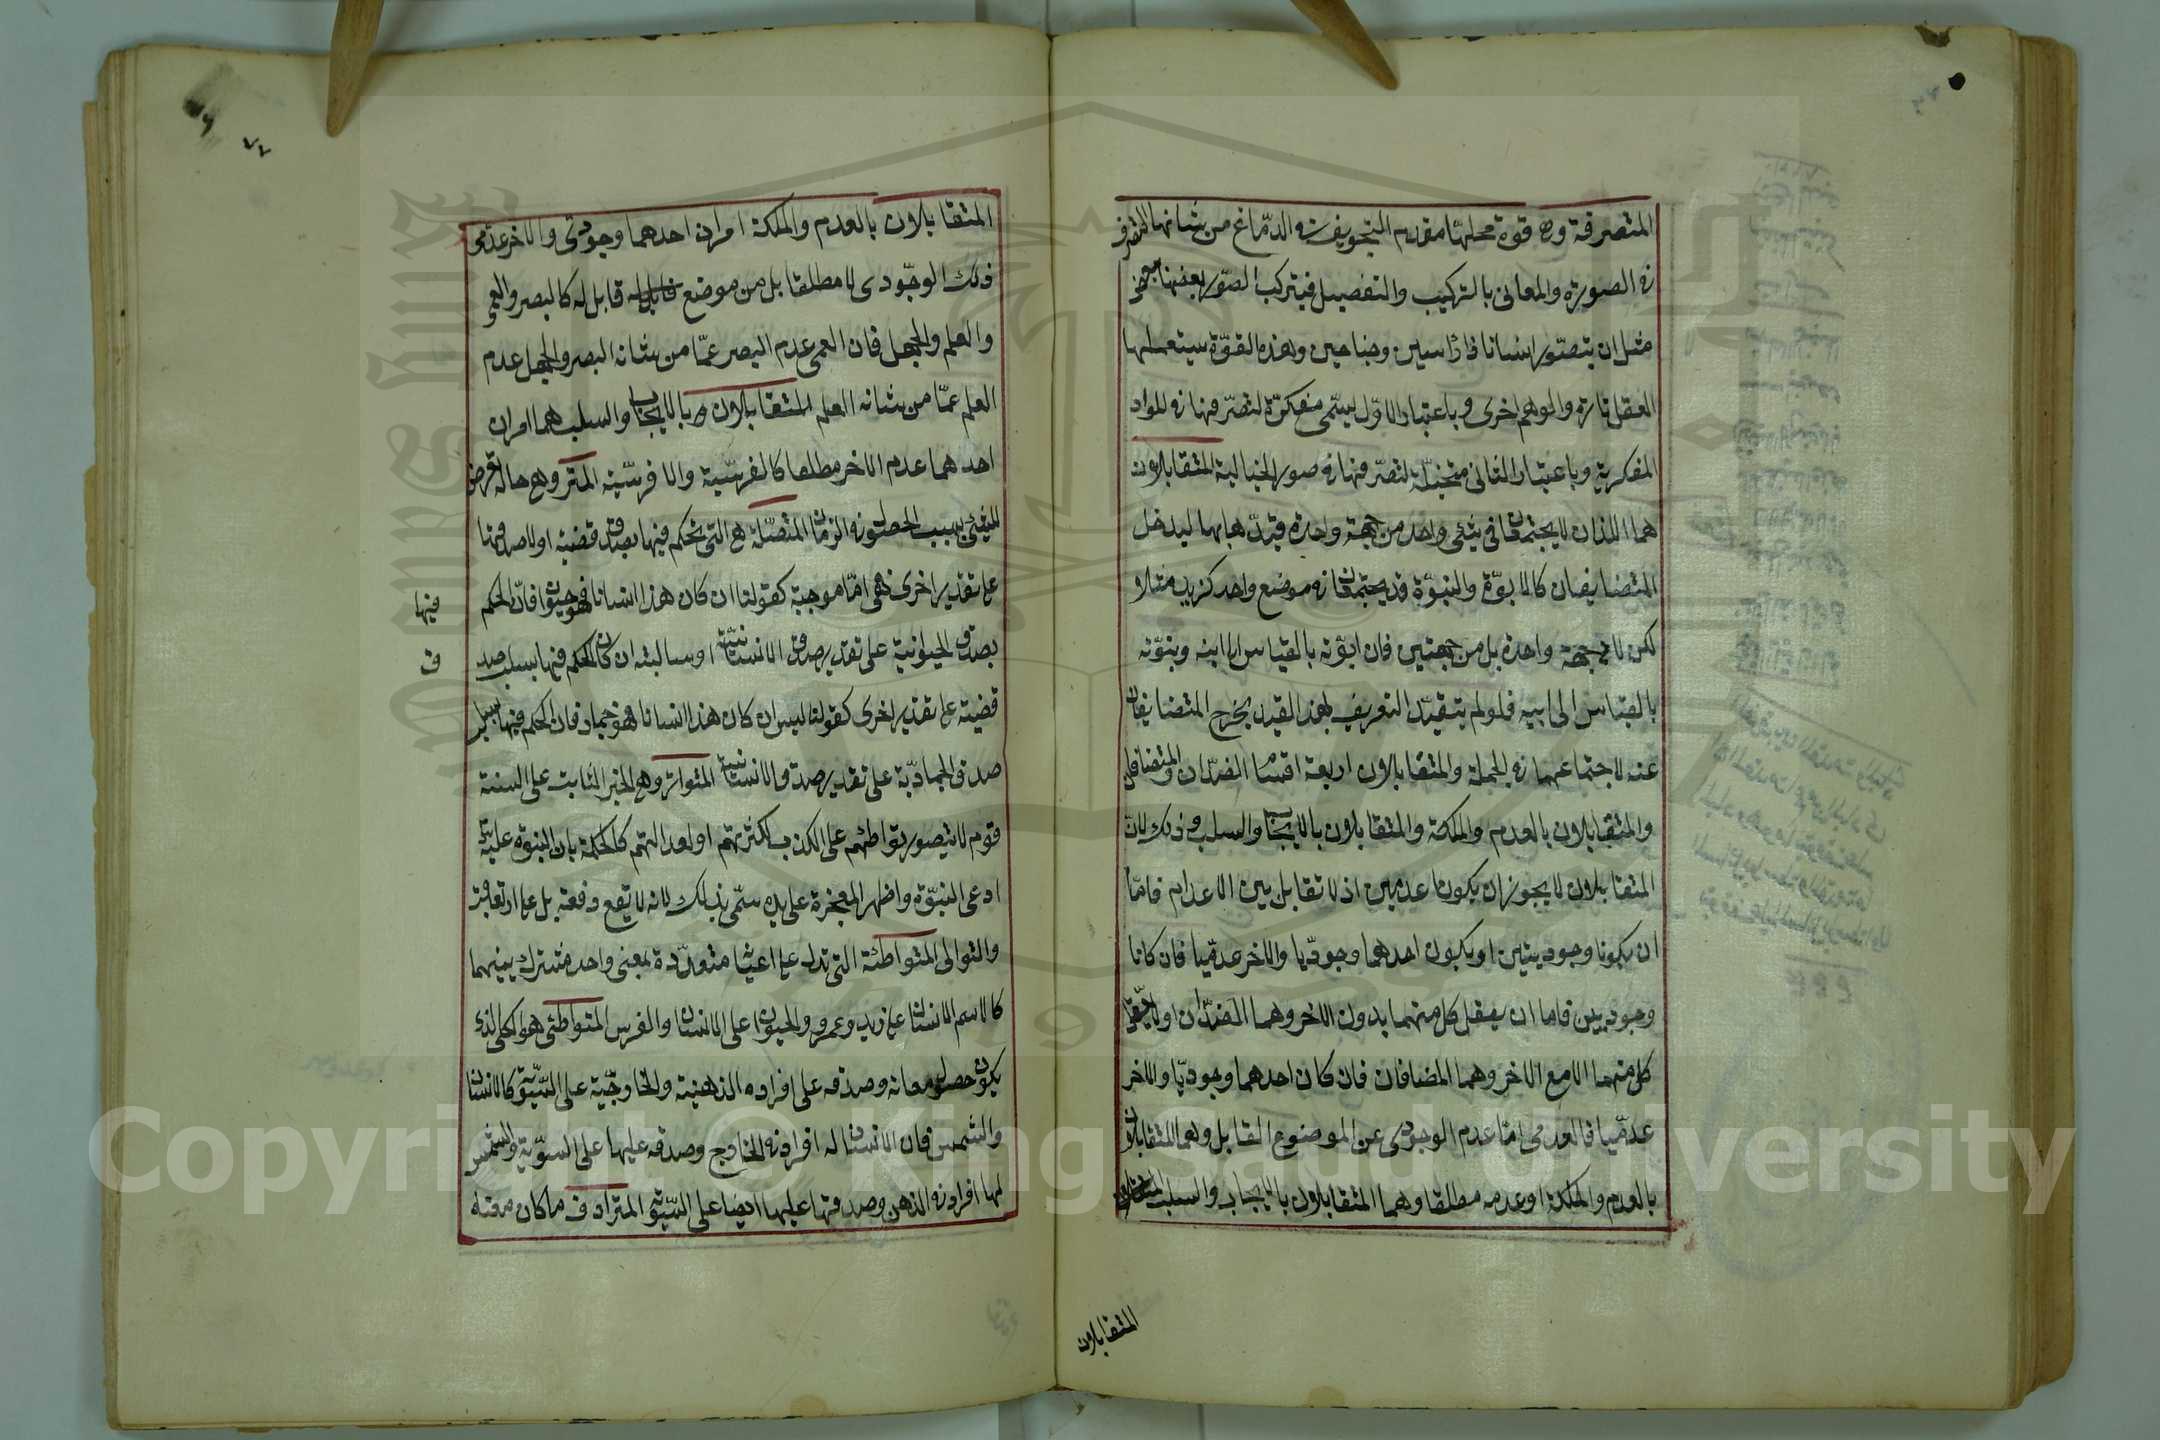 المتصرفة وهي قوة محلها مقدم التجويف من الدماغ من شانها التصرف
في الصورة والمعاني بالتركيب والتفصيل فيتركب الصور بعضها ببعض
مثل ان يتصور انسانا ذا راسين وجناحين وهذه القوة يستعملها
العقل تارة والوهم اخرى وباعتبار الاول يسمى مفكرة لتصرفها في المواد
المفكرية وباعتبار الثاني متخيلة لتصرفها في صور الخيالية المتقابلان
هما اللذان لا يجتمعان في شئ واحد من جهة واحدة قيد هابها ليدخل
المتضايفان كالابوة والبنوة قد يجتمعان في موضع واحد كزيد مثلا
لكن لا من جهة واحدة بل من جهتين فان ابوته بالقياس الى ابنه وبنوته
بالقياس الى ابيه فلو لم يتقيد التعريف بهذا القيد يخرج المتضايفان
عنه لاجتماعهما في الجملة والمتقابلان اربعة اقسام الضدان والمتضايفان
والمتقابلان بالعدم والملكة والمتقابلان بالايجاب والسلب وذلك لان
المتقابلان لا يجوز ان يكونا عدمين اذ لا تقابل بين الاعدام فاما
ان يكونا وجوديتين او يكون احدهما وجوديا والاخر عدميا فان كانا
وجوديين فاما ان يعقل كل منهما بدون الاخر وهما الضدان او لا يعقل
كل منهما الا مع الاخر وهما المضافان فان كان احدهما وجوديا والاخر
عدميا فالعدمي اما عدم الوجودى عن الموضوع القابل وهما المتقابلان
بالعدم والملكة او عدمه مطلقا وهما المتقابلان بالايجاب والسلب
المتقابلان
٧٧
المتقابلان بالعدم والملكة امران احدهما وجودى والاخر عدمى
ذلك الوجودى لا مطلقا بل من موضع قابل له كالبصر والعمى
والعلم والجهل فان العمى عدم البصر عما من شانه البصر والجهل عدم
العلم عما من شانه العلم المتقابلان بالايجاب والسلب هما امران
احدهما عدم الاخر مطلقا كالفرسية والا فرسية المتى وهي حالة تعرض
للشئ بسبب الحصول في الزمان المتصلة هي التي يحكم فيها بصدق قضية او لا صدقها
على تقدير اخرى فهى اما موجبة كقولنا ان كان هذا انسانا فهو حيوان فان الحكم
فيها
بصدق الحيوانية على تقدير صدق الانسانية او سالبة ان كان الحكم فيها بسلب صد
ق
قضية على تقدير اخرى كقولنا ليس ان كان هذا انسانا فهو جماد فان الحكم فيها بسلب
صدق الجمادية على تقدير صدق الانسانية المتواتر وهي الخبر الثابت على السنة
قوم لا يتصور تواطئهم على الكذب لكثرتهم او لعدالتهم كالحكمة بان النبي عليه
ادعى النبوة واظهر المعجزة على يده سمى بذلك لانه لا يقع دفعة بل على
والتوالى المتواطئة التي تدل على اعيان متعددة بمعنى واحد مشترك بينهما
كالاسم الانسان على زيد وعمرو والحيوان على الانسان والفرس المتواطئ هو الكلى الذى
يكون حصول معانه وصدقه على افراده الذهنية والخارجية على السوية كالانسان
والشمس فان الانسان له افراد في الخارج وصدقه عليها على السوية والشمس
لها افراد في الذهن وصدقها عليها ايضا على السوية المترادف ما كان معناه
Copyright © King Saud University